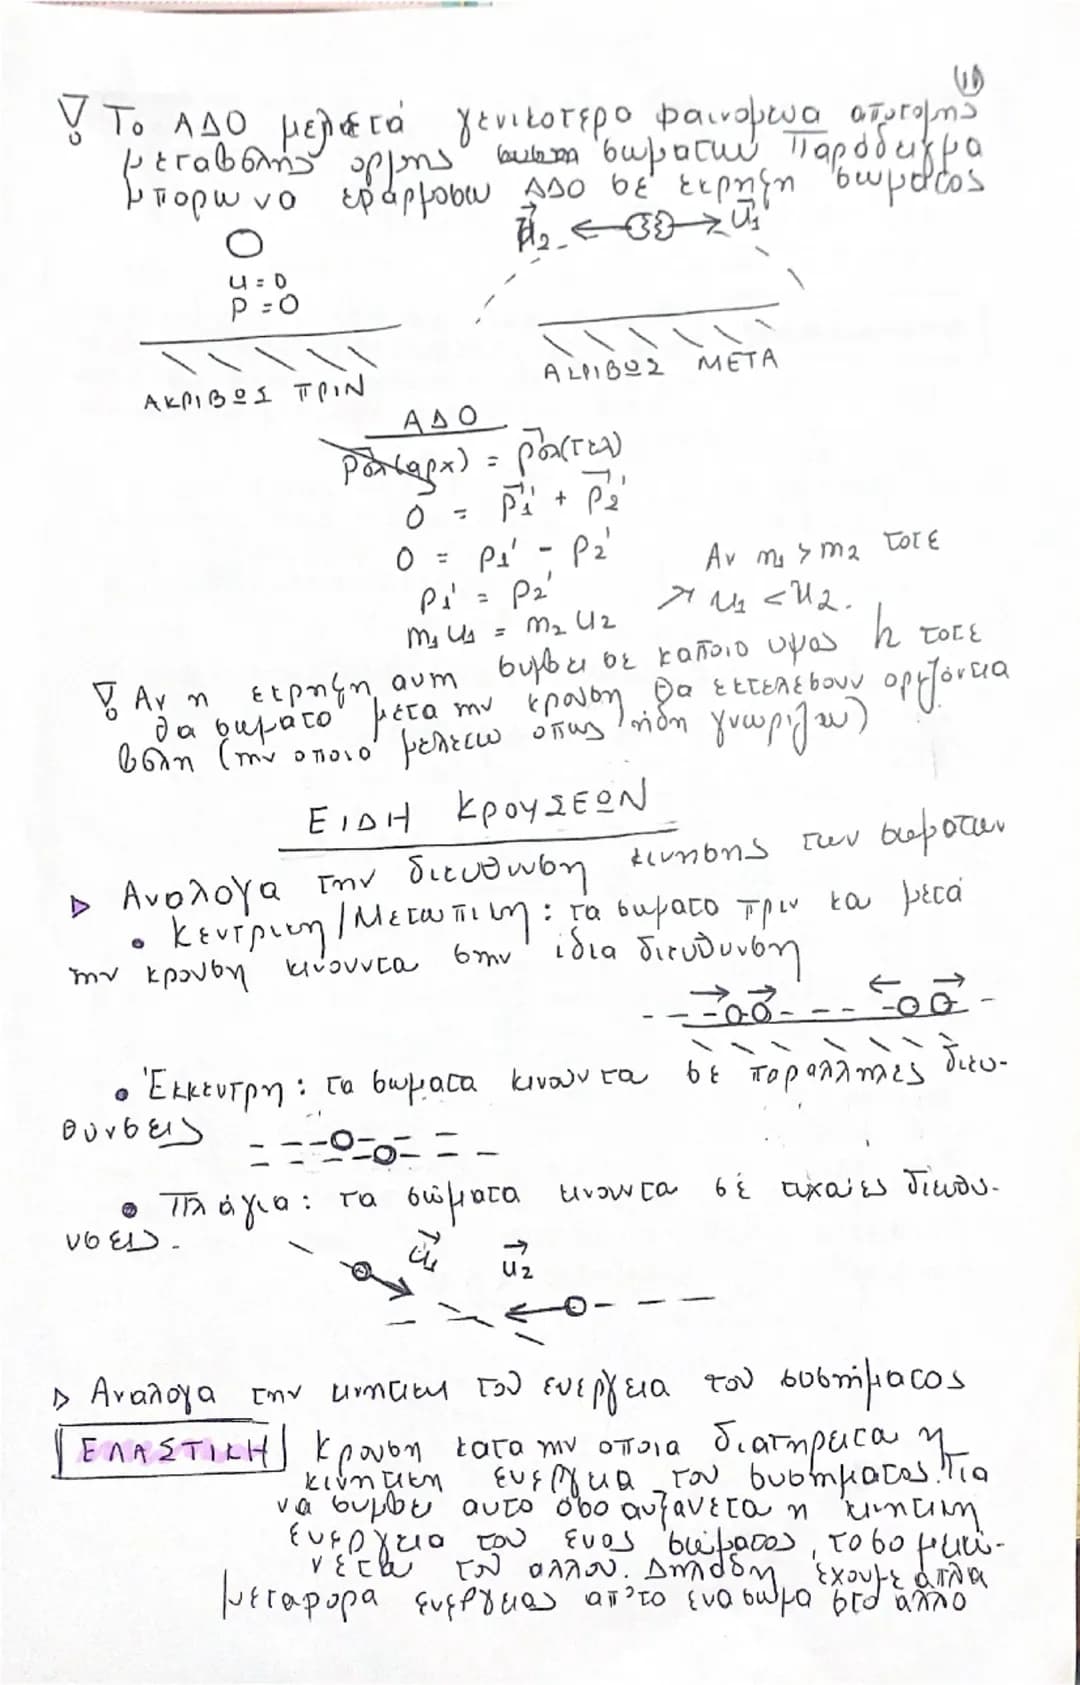 Το ΑΔΟ μελετά γενικοτερο φαινομενα αποτομης
μεταβολης ορμης σωματων Παραδειγμα
μπορω να εφαρμοσω ΑΔΟ σε εκρηξη σωματος
u⃗2 u⃗1
u = 0
p = 0
ΑΚΡΙΒΩΣ ΠΡΙΝ ΑΚΡΙΒΩΣ ΜΕΤΑ
ΑΔΟ
p⃗ολ(αρχ) = p⃗ολ(τελ)
0 = p⃗1' + p⃗2'
0 = p1' - p2'
Αν m1 > m2 τοτε
p1' = p2'
u1 < u2.
m1 u1 = m2 u2
Αν η εκρηξη αυτη συμβει σε καποιο υψος h τοτε
θα σωματα μετα την κρουση θα εκτελεσουν οριζοντια
βολη (την οποια μελεταω οπως ήδη γνωριζω)
ΕΙΔΗ ΚΡΟΥΣΕΩΝ
Αναλογα την διευθυνση κινησης των σωματων
• Κεντρικη/Μετωπικη: τα σωματα πριν και μετά
την κρουση κινουντα στην ίδια διευθυνση
• Έκκεντρη: τα σωματα κινουντα σε παραλληλες διευ-
θυνσεις
• Πλάγια: τα σώματα κινουντα σέ τυχαίες διευθυ-
νσεις.
u⃗1 u⃗2
Αναλογα την κινητικη του ενεργεια του συστήματος
ΕΛΑΣΤΙΚΗ Κρουση κατα την οποια διατηρειτα η
κινητικη ενεργεια του συστηματος. Για
να συμβει αυτο όσο αυξανετα η κινητικη
ενεργεια του ενος σώματος, τοσο μειώ-
νεται του αλλου. Δηλαδη έχουμε απλα
μεταφορα ενεργειας απ'το ενα σωμα στο αλλο